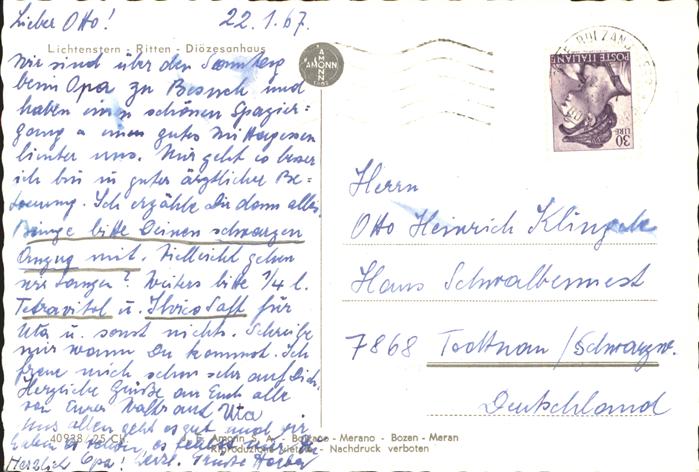 Lieber Otto! 22.1.67.
Lichtenstern - Ritten - Diözesanhaus
Wir sind über den Sonntag
beim Opa zu Besuch und
haben einen schönen Spazier-
gang u. ein gutes Mittagessen
hinter uns. Mir geht es besser
ich bin in guter ärztlicher Be-
treuung. Ich erzähle Dir dann alles
Bringe bitte Deinen schwarzen
Anzug mit. Vielleicht gehen
wir tanzen? Weiters bitte 1/4 l.
Tetravitol u. Saft für
Uta u. sonst nichts. Schreibe
mir wann Du kommst. Ich
freue mich schon sehr auf Dich.
Herzliche Grüße an Euch alle
von Eurer und Uta
Uns allen geht es gut und wir
haben es schön, es
Herzlich Opa! Herzl.
AMONN
AMONN
30 LIRE
POSTE ITALIANE
BOLZANO
Herrn
Otto Heinrich Klingele
Haus Schwalbennest
7868 Todtnau / Schwarzw.
Deutschland
40938/25 CH J. F. Amonn S. A. - Bolzano - Merano - Bozen - Meran
Riproduzione vietata - Nachdruck verboten